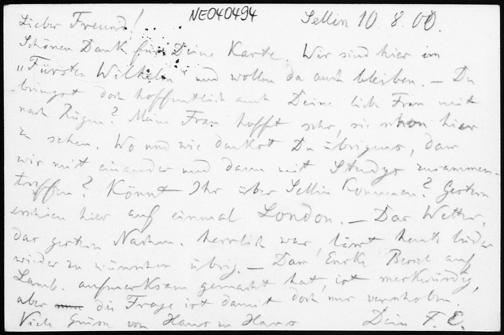 NE040494
Sellin 10.8.00.
Lieber Freund!
Schönen Dank für Deine Karte. Wir sind hier im
„Fürsten Wilhelm" und wollen da auch bleiben. – Du
bringst doch hoffentlich auch Deine liebe Frau mit
nach Rügen? Meine Frau hofft sehr, sie schon hier
zu sehen. Wo und wie denkst Du übrigens, dass
wir mit einander und dann mit Study zusammen-
treffen? Könnt Ihr über Sellin kommen? Gestern
erschien hier auf einmal London. – Das Wetter,
das gestern Nachm. herrlich war, lässt heute leider
wieder zu wünschen übrig. – Dass auf
Lamb. aufmerksam gemacht hat, ist merkwürdig,
aber die Frage ist damit doch nur verschoben.
Viele Grüsse von Haus zu Haus Dein F. E.